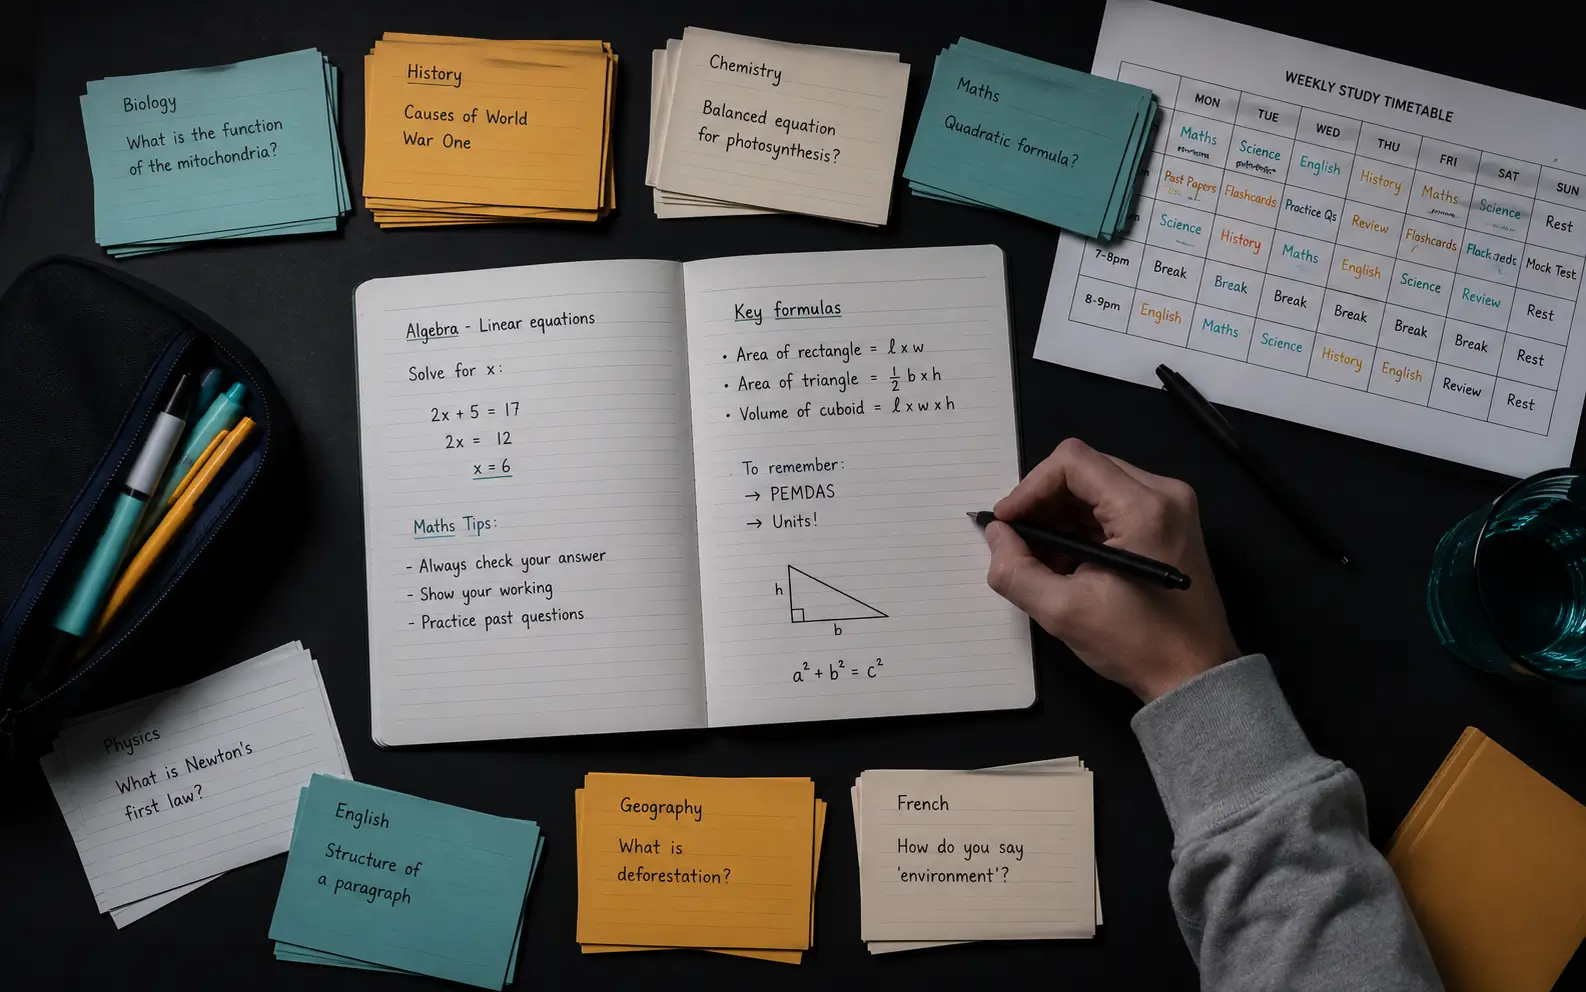 Biology
What is the function
of the mitochondria?
History
Causes of World
War One
Chemistry
Balanced equation
for photosynthesis?
Maths
Quadratic formula?
WEEKLY STUDY TIMETABLE
MON TUE WED THU FRI SAT SUN
Maths Science English History Maths Science Rest
Past Papers Flashcards Practice Qs Review Floshcards Mock Test
Science History Maths English Science Review Rest
7-8pm Break Break Break Break Break Break Rest
8-9pm English Maths Science History English Review Rest
Algebra - Linear equations
Solve for x:
2x + 5 = 17
2x = 12
x = 6
Maths Tips:
- Always check your answer
- Show your working
- Practice past questions
Key formulas
• Area of rectangle = ℓ x w
• Area of triangle = ½ b x h
• Volume of cuboid = ℓ x w x h
To remember:
→ PEMDAS
→ Units!
h
b
a² + b² = c²
Physics
What is Newton's
first law?
English
Structure of
a paragraph
Geography
What is
deforestation?
French
How do you say
'environment'?